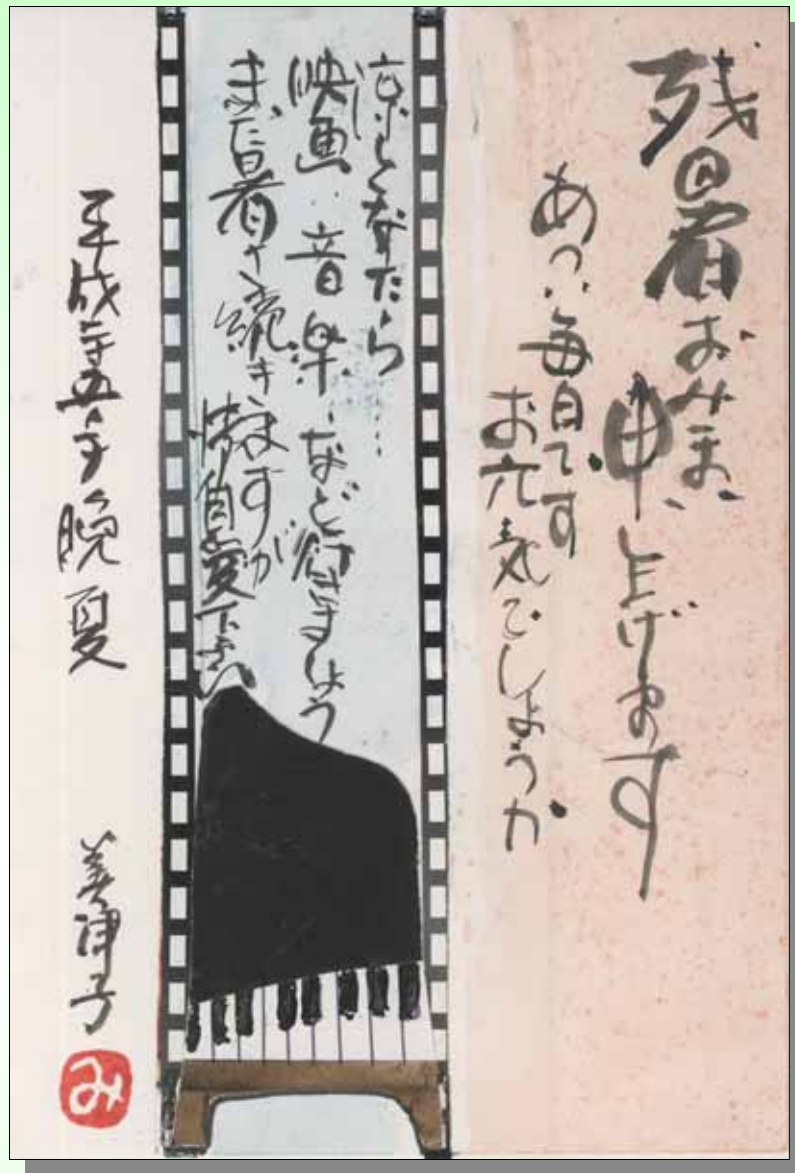 残暑おみまい
申し上げます
あつい毎日です
お元気でしょうか
涼しくなったら…
映画・音楽・など行きましょう
まだ暑さ続きますが
御自愛下さい
平成二十五年晩夏
美津子
み